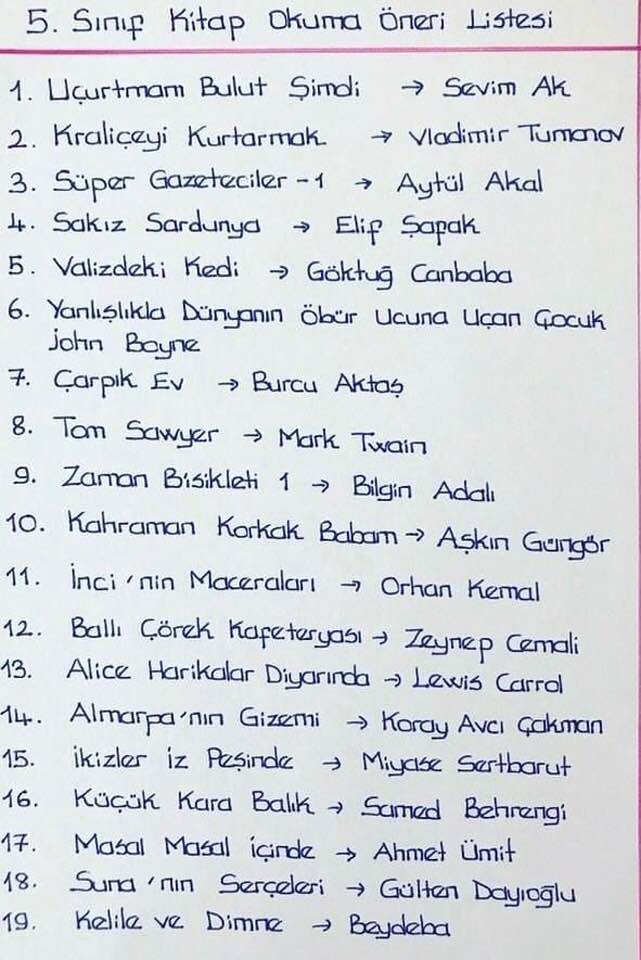 5. Sınıf Kitap Okuma Öneri Listesi
1. Uçurtmam Bulut Şimdi → Sevim Ak
2. Kraliçeyi Kurtarmak → Vladimir Tumanov
3. Süper Gazeteciler -1 → Aytül Akal
4. Sakız Sardunya → Elif Şafak
5. Valizdeki Kedi → Göktuğ Canbaba
6. Yanlışlıkla Dünyanın Öbür Ucuna Uçan Çocuk
John Boyne
7. Çarpık Ev → Burcu Aktaş
8. Tom Sawyer → Mark Twain
9. Zaman Bisikleti 1 → Bilgin Adalı
10. Kahraman Korkak Babam → Aşkın Güngör
11. İnci'nin Maceraları → Orhan Kemal
12. Ballı Çörek Kafeteryası → Zeynep Cemali
13. Alice Harikalar Diyarında → Lewis Carrol
14. Almarpa'nın Gizemi → Koray Avcı Çakman
15. İkizler İz Peşinde → Miyase Sertbarut
16. Küçük Kara Balık → Samed Behrengi
17. Masal Masal İçinde → Ahmet Ümit
18. Suna'nın Serçeleri → Gülten Dayıoğlu
19. Kelile ve Dimne → Beydeba